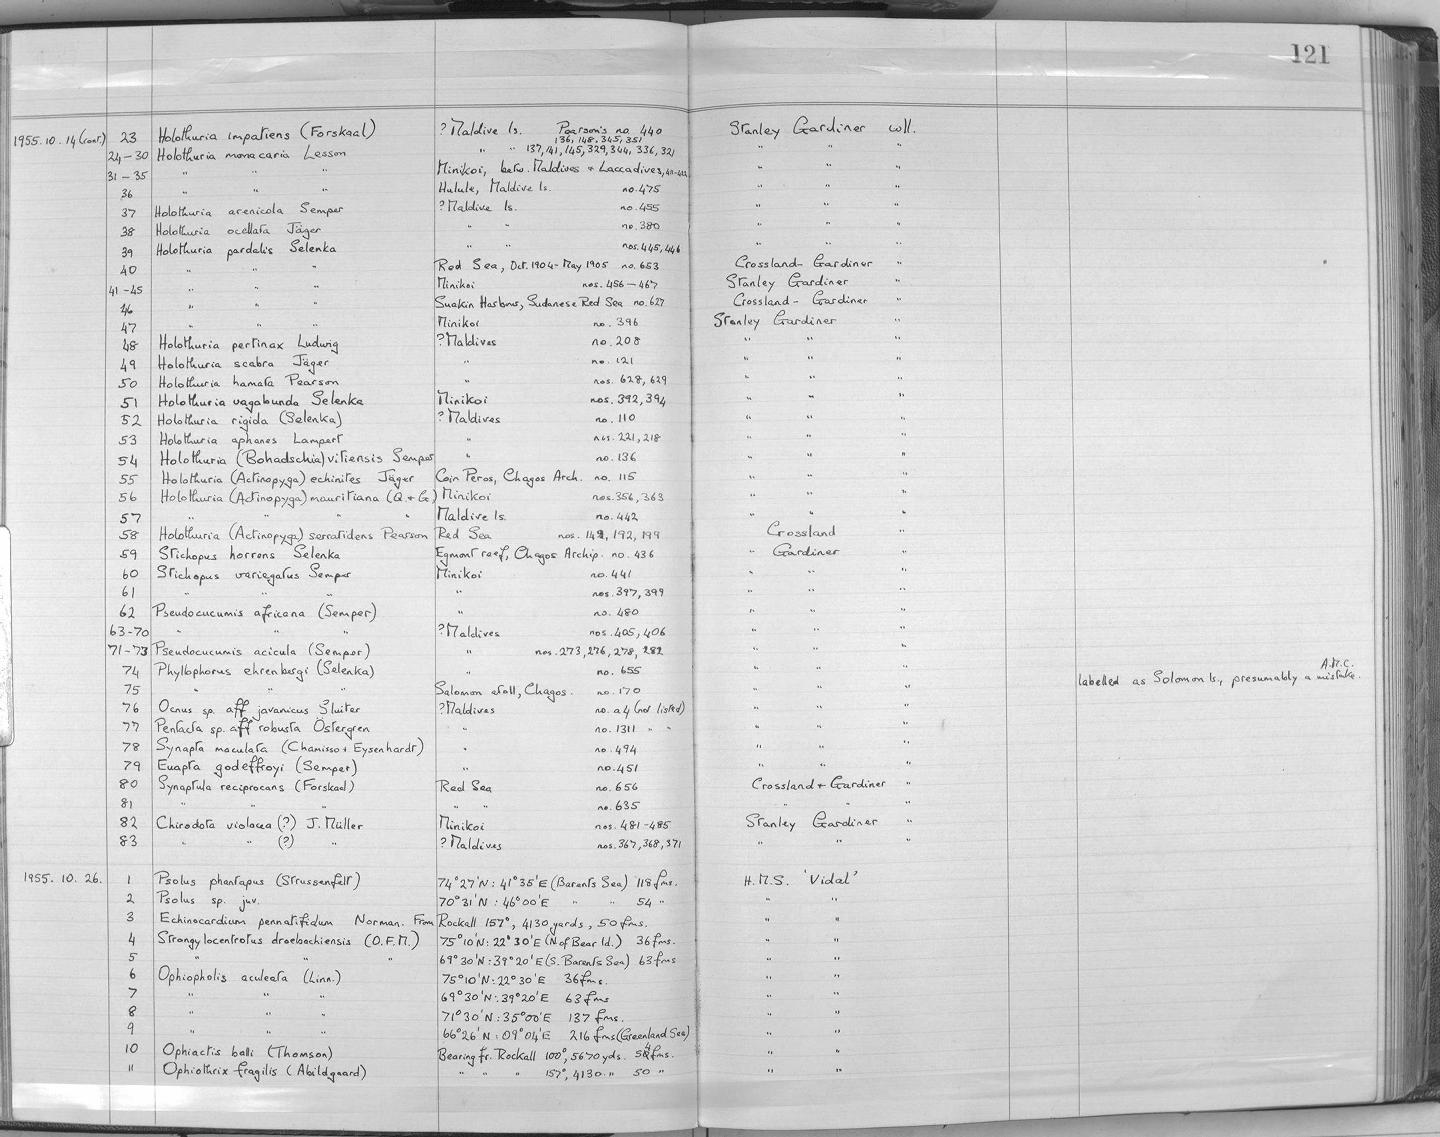 121
1955.10.14 (cont.) 23 Holothuria impatiens (Forskaal) ? Maldive Is. Pearson's no. 440 Stanley Gardiner coll.
136, 148, 345, 351
24-30 Holothuria monacaria Lesson " " 137, 141, 145, 329, 344, 336, 321 " " "
31-35 " " " Minikoi, betw. Maldives + Laccadives, " " "
36 " " " Hulule, Maldive Is. no. 475 " " "
37 Holothuria arenicola Semper ? Maldive Is. no. 455 " " "
38 Holothuria ocellata Jäger " " no. 380 " " "
39 Holothuria pardalis Selenka " " nos. 445, 446 " " "
40 " " " Red Sea, Oct. 1904 - May 1905 no. 653 Crossland - Gardiner "
41-45 " " " Minikoi nos. 456-467 Stanley Gardiner "
46 " " " Suakin Harbour, Sudanese Red Sea no. 627 Crossland - Gardiner "
47 " " " Minikoi no. 396 Stanley Gardiner "
48 Holothuria pertinax Ludwig ? Maldives no. 208 " " "
49 Holothuria scabra Jäger " no. 121 " " "
50 Holothuria hamata Pearson " nos. 628, 629 " " "
51 Holothuria vagabunda Selenka Minikoi nos. 392, 394 " " "
52 Holothuria rigida (Selenka) ? Maldives no. 110 " " "
53 Holothuria aphanes Lampert " nos. 221, 218 " " "
54 Holothuria (Bohadschia) vitiensis Semper " no. 136 " " "
55 Holothuria (Actinopyga) echinites Jäger Coin Peros, Chagos Arch. no. 115 " " "
56 Holothuria (Actinopyga) mauritiana (Q. + G.) Minikoi nos. 356, 363 " " "
57 " " " " Maldive Is. no. 442 " " "
58 Holothuria (Actinopyga) serratidens Pearson Red Sea nos. 192, 199 Crossland "
59 Stichopus horrens Selenka Egmont reef, Chagos Archip. no. 436 " Gardiner "
60 Stichopus variegatus Semper Minikoi no. 441 " " "
61 " " " " nos. 397, 399 " " "
62 Pseudocucumis africana (Semper) " no. 480 " " "
63-70 " " " ? Maldives nos. 405, 406 " " "
71-73 Pseudocucumis acicula (Semper) " nos. 273, 276, 278, 282 " " "
74 Phyllophorus ehrenbergi (Selenka) " no. 655 " " "
75 " " " Salomon atoll, Chagos. no. 170 " " " labelled as Solomon Is., presumably a mistake. A.M.C.
76 Ocnus sp. aff javanicus Sluiter ? Maldives no. a4 (not listed) " " "
77 Pentacta sp. aff robusta Östergren " no. 1311 " " " " "
78 Synapta maculata (Chamisso + Eysenhardt) " no. 494 " " "
79 Euapta godeffroyi (Semper) " no. 451 " " "
80 Synaptula reciprocans (Forskaal) Red Sea no. 656 Crossland + Gardiner "
81 " " " " " no. 635 " " "
82 Chirodota violacea (?) J. Müller Minikoi nos. 481-485 Stanley Gardiner "
83 " " (?) " ? Maldives nos. 367, 368, 371 " " "
1955.10.26. 1 Psolus phantapus (Strussenfelt) 74°27'N : 41°35'E (Barents Sea) 118 fms. H.M.S. 'Vidal'
2 Psolus sp. juv. 70°31'N : 46°00'E " " 54 " " "
3 Echinocardium pennatifidum Norman. From Rockall 157°, 4130 yards, 50 fms. " "
4 Strongylocentrotus droebachiensis (O.F.M.) 75°10'N : 22°30'E (N. of Bear Id.) 36 fms. " "
5 " " " 69°30'N : 39°20'E (S. Barents Sea) 63 fms " "
6 Ophiopholis aculeata (Linn.) 75°10'N : 22°30'E 36 fms. " "
7 " " " 69°30'N : 39°20'E 63 fms " "
8 " " " 71°30'N : 35°00'E 137 fms. " "
9 " " " 66°26'N : 09°04'E 216 fms (Greenland Sea) " "
10 Ophiactis balli (Thomson) Bearing fr. Rockall 100°, 5670 yds. 54 fms. " "
11 Ophiothrix fragilis (Abildgaard) " " " 157°, 4130 " 50 " " "